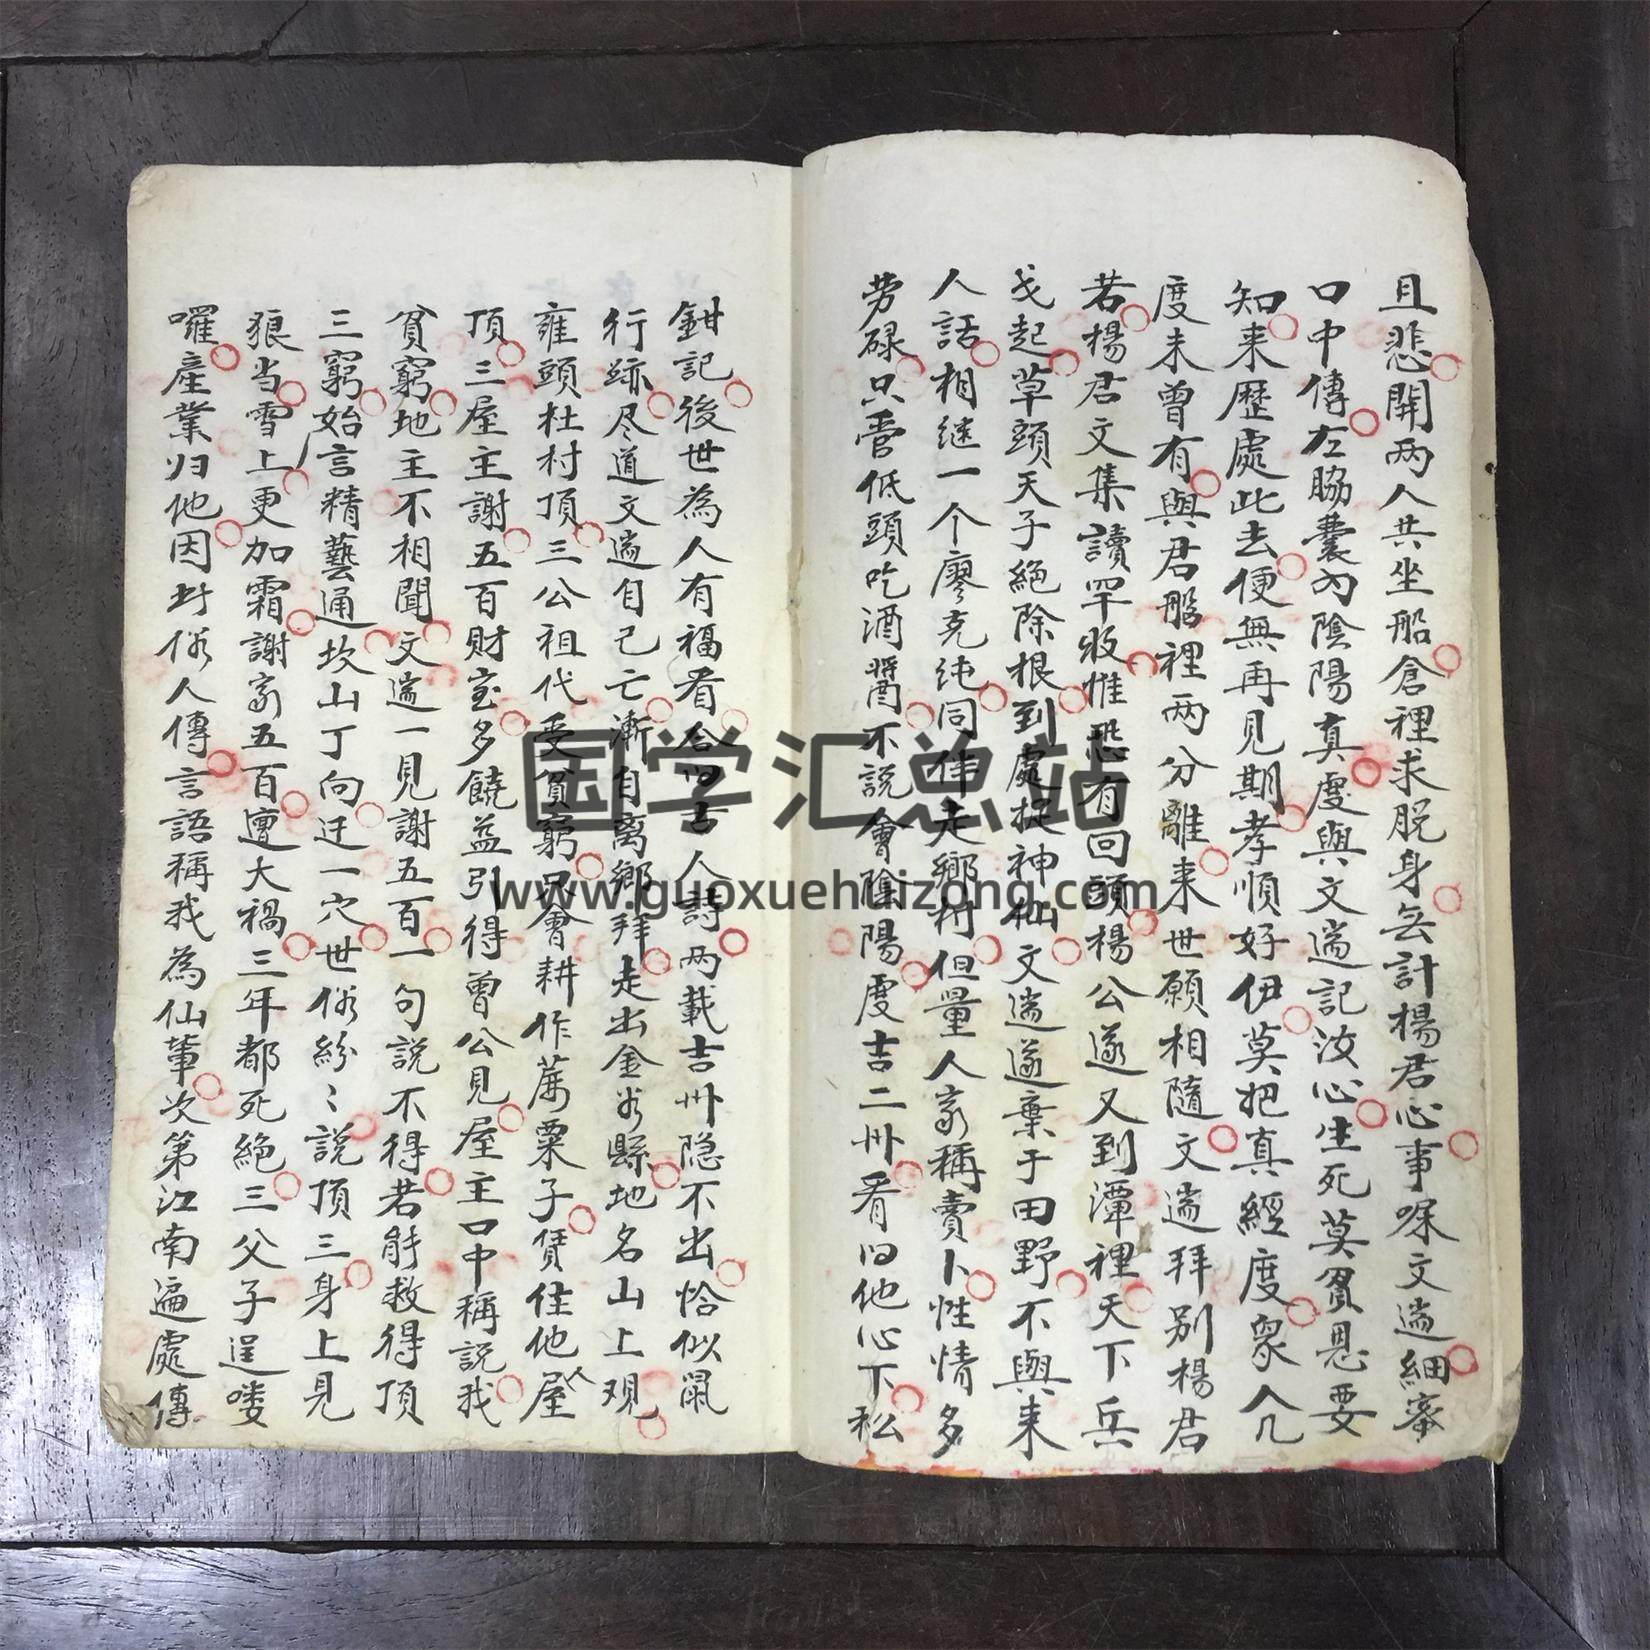 且悲開两人共坐船倉裡求脱身無計楊君心事噪文遄細審
口中傳左脇囊內陰陽真度與文遄記汝心生死莫負恩要
知来歷處此去便無再見期孝順好伊莫把真經度衆人几
度未曾有與君船裡两分離来世願相隨文遄拜别楊君
若楊君文集讀罕收惟恐有回頭楊公遂又到潭裡天下兵
戈起草頭天子絕除根到處捉神仙文遄遂棄于田野不與来
人話相継一个廖克纯同伴走鄉村但量人家稱賣卜性情多
劳碌只管低頭吃酒醬不說會陰陽度吉二卅看曰他心下私
鉗記後世為人有福看合曰古人詩两載吉卅隐不出恰似鼠
行跡尽道文遄自己亡漸自离鄉拜走出金谷縣地名山上观
雍頭杜村頂三公祖代受貧窮只會耕作蔗粟子賃住他人屋
頂三屋主謝五百財宝多饒益引得曾公見屋主口中稱說我
貧窮地主不相聞文遄一見謝五百一句說不得若能救得頂
三窮始言精藝通坎山丁向迁一穴世俗紛〻說頂三身上見
狼当雪上更加霜謝家五百遭大禍三年都死絕三父子逞喽
囉產業归他因圩俗人傳言語稱我為仙輩次第江南遍處傳
国学汇总站
www.guoxuehuizong.com